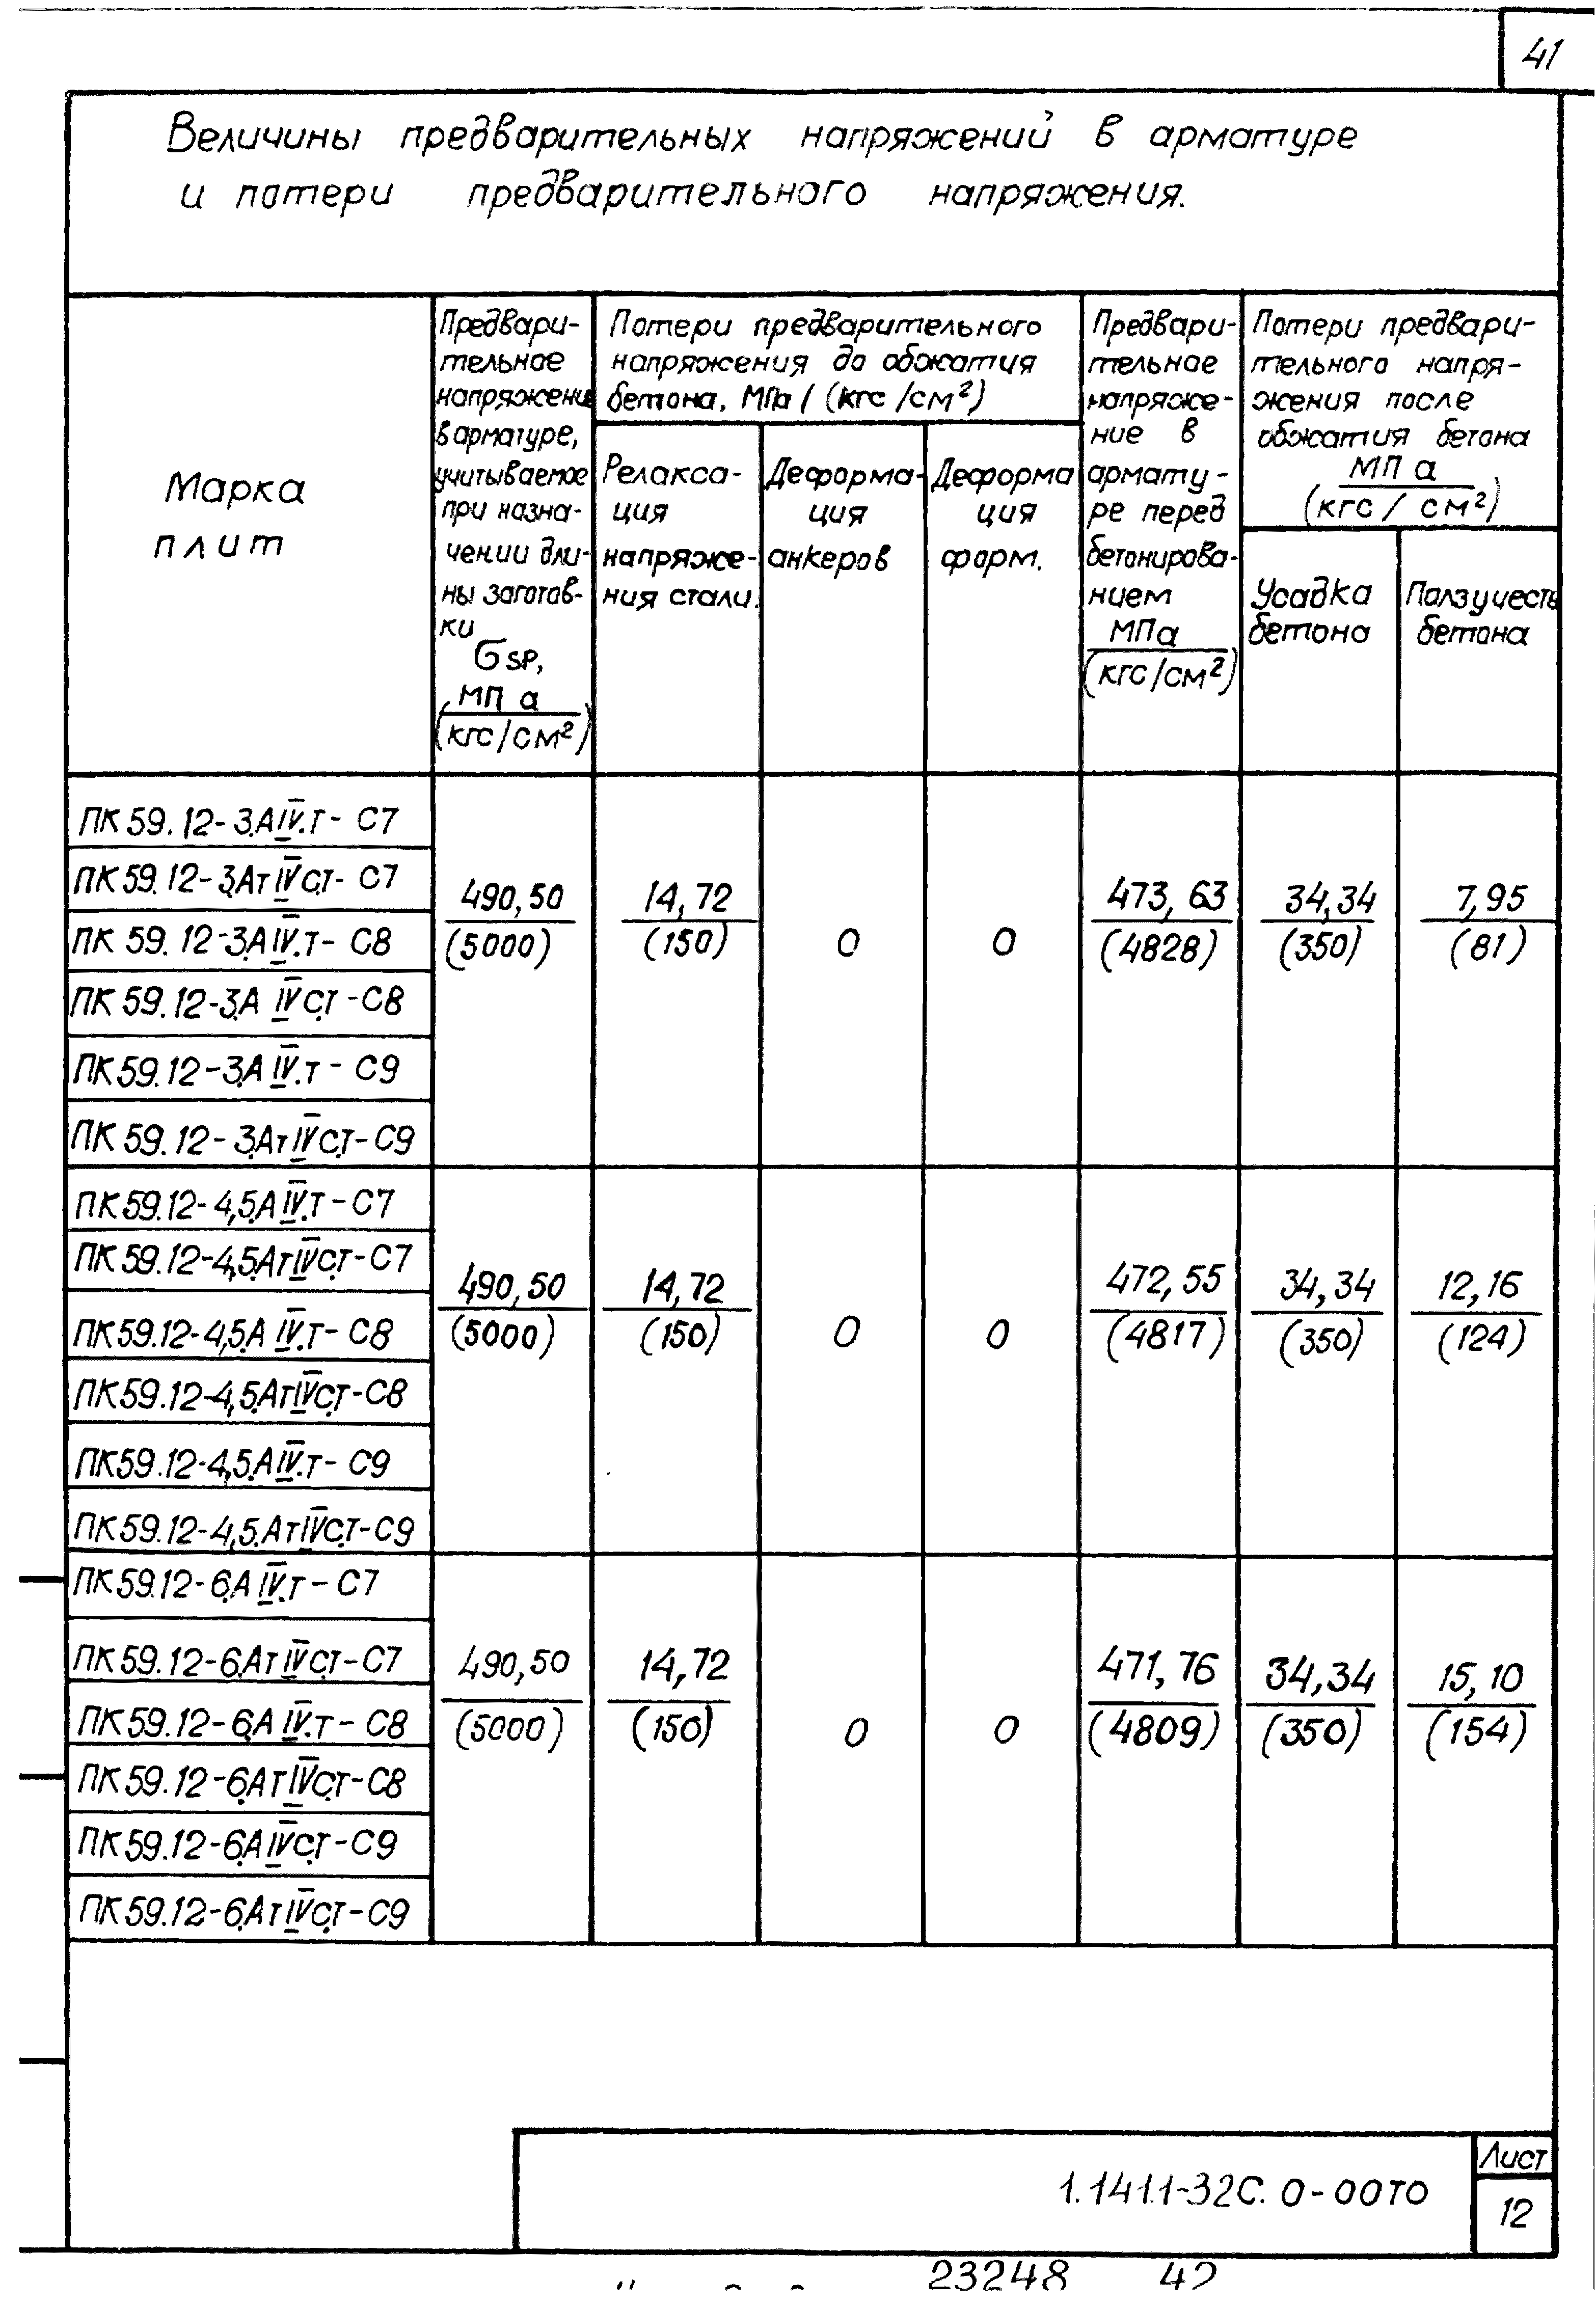 41
Величины предварительных напряжений в арматуре
и потери предварительного напряжения.
Марка
плит
Предвари-
тельное
напряжени
в арматуре,
учитываемое
при назна-
чении дли-
ны заготов-
ки
σSP,
МПа
(кгс/см²)
Потери предварительного
напряжения до обжатия
бетона, МПа/(кгс/см²)
Релакса-
ция
напряже-
ния стали.
Деформа-
ция
анкеров
Деформа
ция
форм.
Предвари-
тельное
напряже-
ние в
армату-
ре перед
бетонирова-
нием
МПа
(кгс/см²)
Потери предвари-
тельного напря-
жения после
обжатия бетона
МПа
(кгс/см²)
Усадка
бетона
Ползучесть
бетона
ПК59.12-3.АIV.т-С7
ПК59.12-3.АтIVс.т-С7
ПК59.12-3.АIV.т-С8
ПК59.12-3.АIVс.т-С8
ПК59.12-3.АIV.т-С9
ПК59.12-3.АтIVс.т-С9
490,50 14,72 473,63 34,34 7,95
(5000) (150) 0 0 (4828) (350) (81)
ПК59.12-4,5.АIV.т-С7
ПК59.12-4,5.АтIVс.т-С7
ПК59.12-4,5.АIV.т-С8
ПК59.12-4,5.АтIVс.т-С8
ПК59.12-4,5.АIV.т-С9
ПК59.12-4,5.АтIVс.т-С9
490,50 14,72 472,55 34,34 12,16
(5000) (150) 0 0 (4817) (350) (124)
ПК59.12-6.АIV.т-С7
ПК59.12-6.АтIVс.т-С7
ПК59.12-6.АIV.т-С8
ПК59.12-6.АтIVс.т-С8
ПК59.12-6.АIVс.т-С9
ПК59.12-6.АтIVс.т-С9
490,50 14,72 471,76 34,34 15,10
(5000) (150) 0 0 (4809) (350) (154)
1.141.1-32С.0-00ТО
Лист
12
23248 42